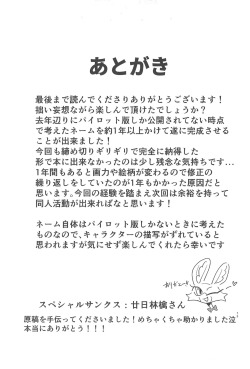 あとがき
最後まで読んでくださりありがとうございます！
拙い妄想ながら楽しんで頂けたでしょうか？
去年辺りにパイロット版しか公開されてない時点
で考えたネームを約1年以上かけて遂に完成させる
ことが出来ました！
今回も締め切りギリギリで完全に納得した
形で本に出来なかったのは少し残念な気持ちです…
1年間もあると画力や絵柄が変わるので修正の
繰り返しをしていたのが1年もかかった原因だと
思います。今回の経験を踏まえ次回は余裕を持って
同人活動が出来ればなと思います！
ネーム自体はパイロット版しかないときに考えた
ものなので、キャラクターの描写がずれていると
思われますが気にせず楽しんでくれたら幸いです
スペシャルサンクス：廿日林檎さん
原稿を手伝ってくださいました！めちゃくちゃ助かりました泣
本当にありがとう！！！